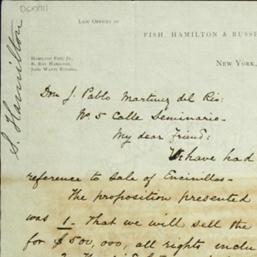 LAW OFFICES OF
FISH, HAMILTON & RUSSE
HAMILTON FISH, JR.,
S. RAY HAMILTON,
JOHN WATTS RUSSELL.
NEW YORK,
S. Hamilton
Don J. Pablo Martinez del Rio:
No. 5 Calle Seminario-
My dear Friend:
We have had
reference to Sale of Encinillas-
The proposition presented
was 1- That we will sell the
for $500,000, all rights inclu